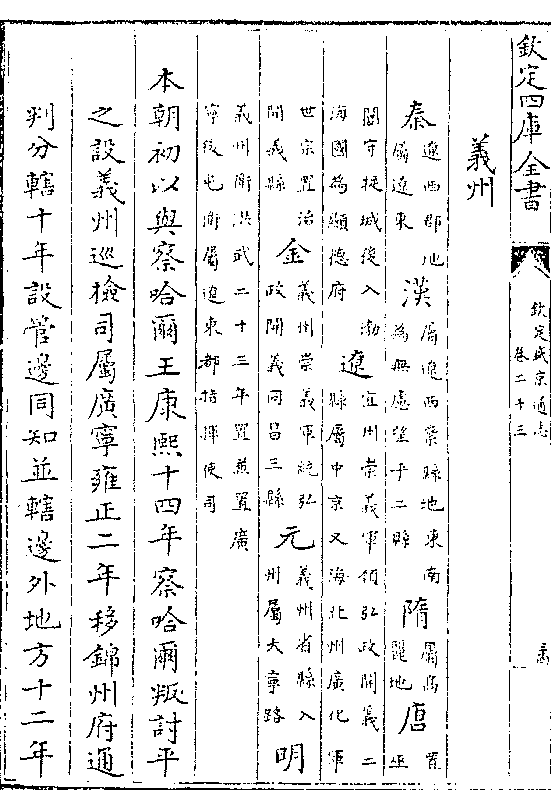 欽定四庫全書
欽定盛京通志
卷二十三
義州
秦遼西郡地屬遼東漢屬遼西絫縣地東南為無慮望平二縣隋屬高麗地唐置巫
閭守捉城後入渤海國為顯德府遼宜州崇義軍領弘政開義二縣屬中京又海北州廣化軍
世宗置治開義縣金義州崇義軍統弘政開義同昌三縣元義州省縣入州屬大寧路明
義州衛洪武二十三年置並置廣寧後屯衛屬遼東都指揮使司
本朝初以與察哈爾王康熙十四年察哈爾叛討平
之設義州巡檢司屬廣寧雍正二年移錦州府通
判分轄十年設管邊同知並轄邊外地方十二年